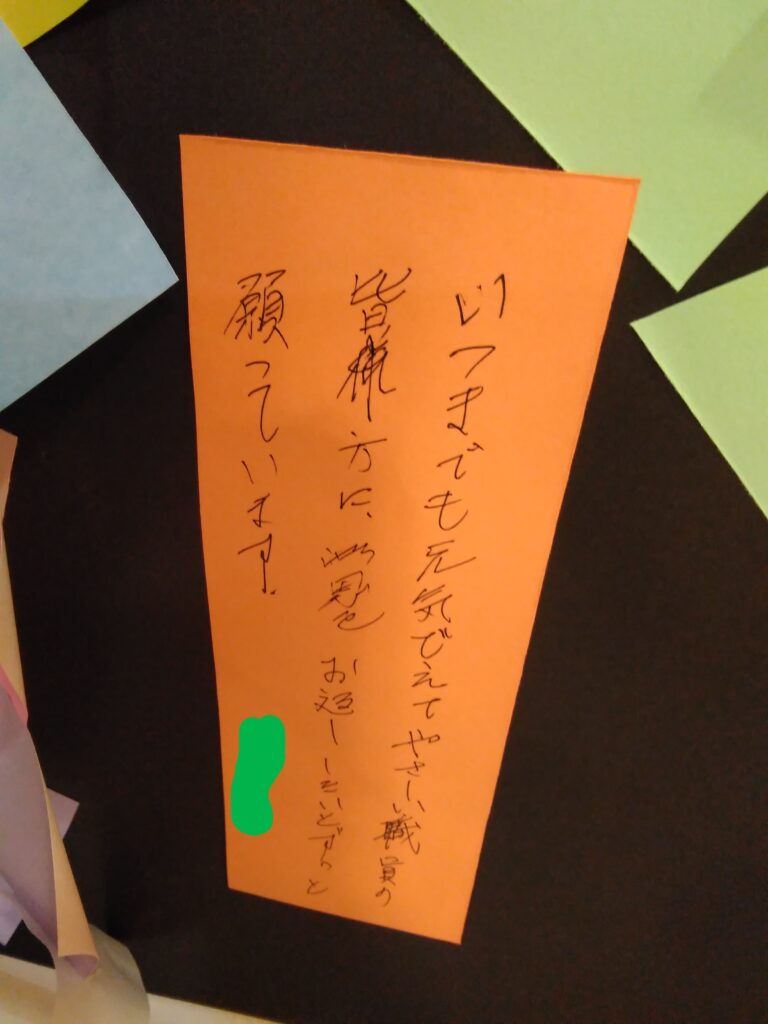 いつまでも元気でえてやさしい職員の
皆様方に、御恩をお返ししたいとずっと
願っています.